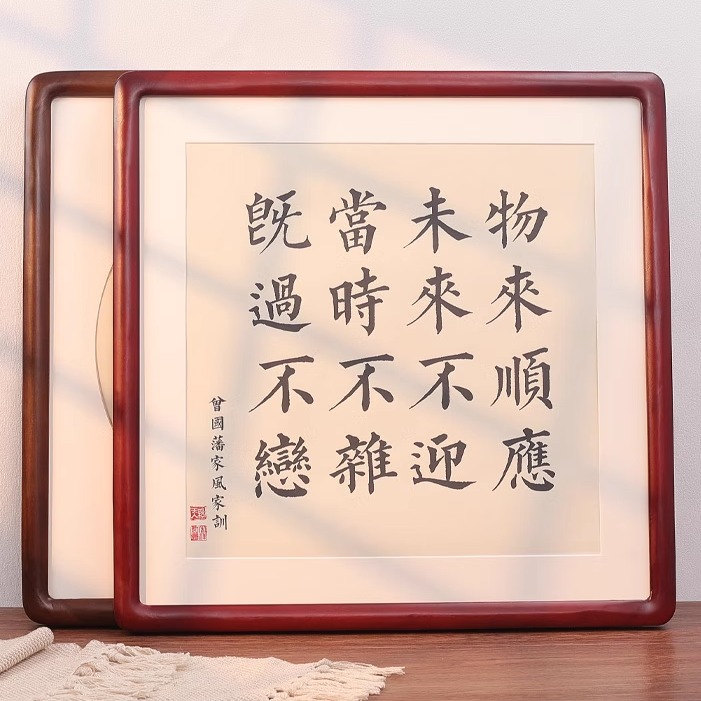 物來順應
未來不迎
當時不雜
既過不戀
曾國藩家風家訓